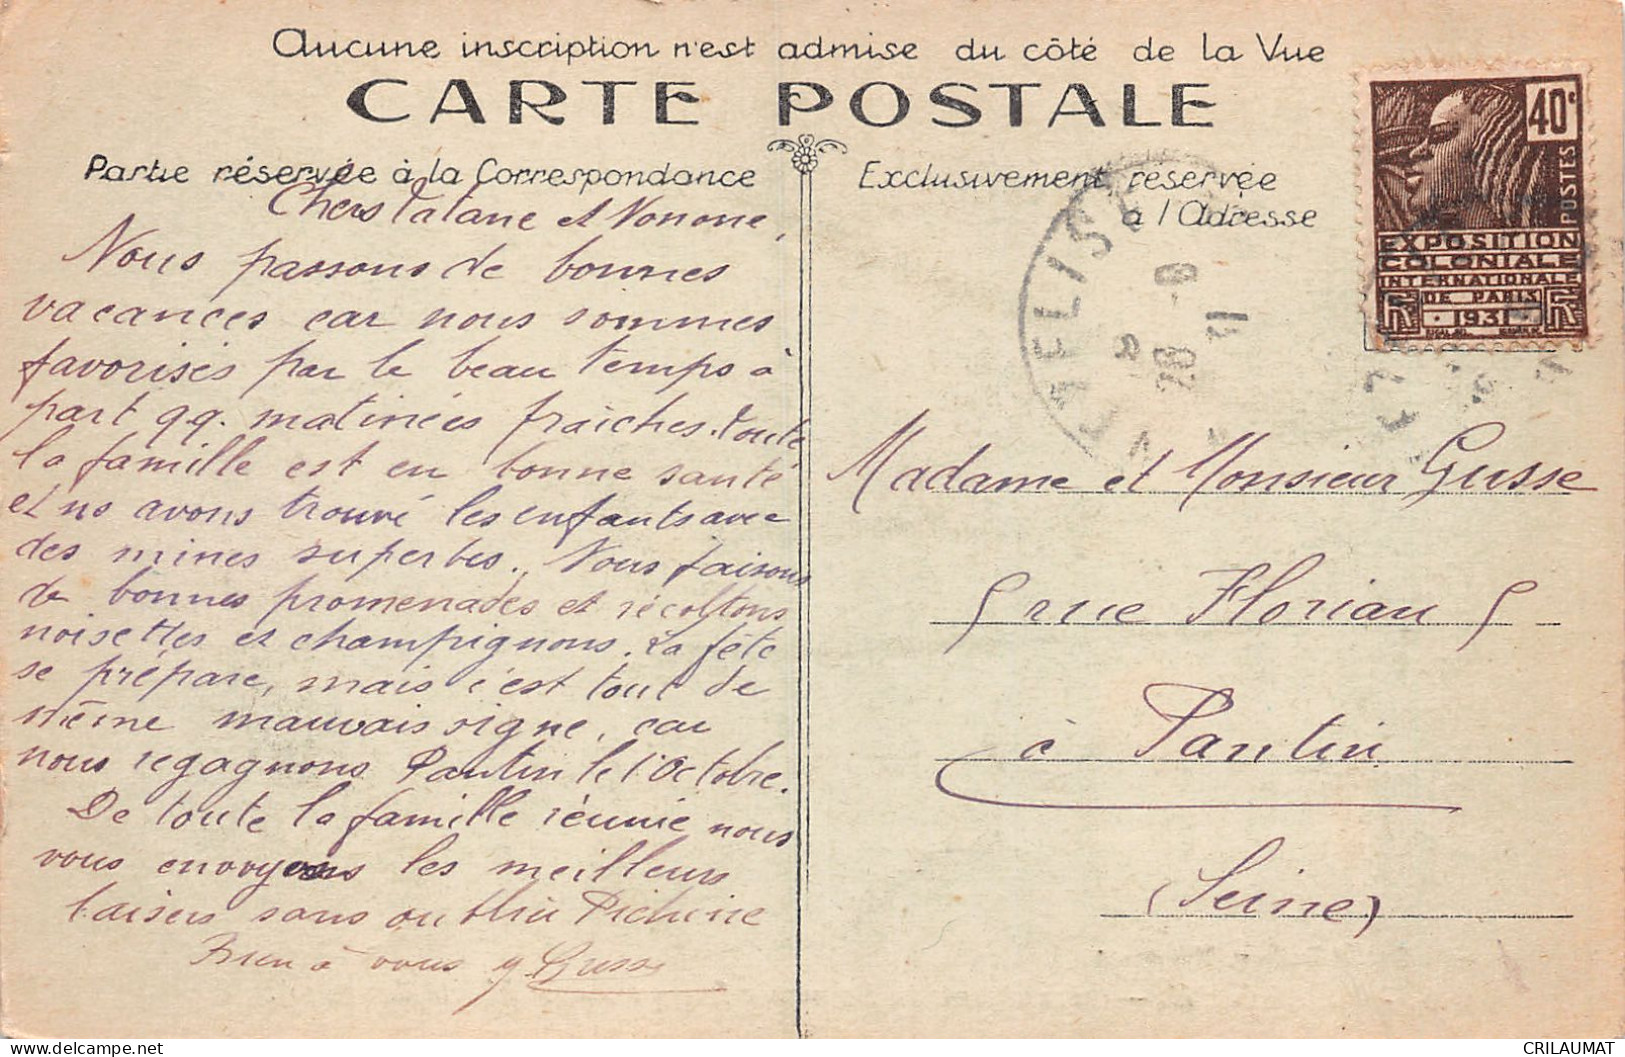 Aucune inscription n'est admise du côté de la Vue
CARTE POSTALE
Partie réservée à la Correspondance
Chers Tatane et Nonone,
Nous passons de bonnes
vacances car nous sommes
favorisés par le beau temps à
part qq. matinées fraîches. Toute
la famille est en bonne santé
et ns avons trouvé les enfants avec
des mines superbes. Nous faisons
de bonnes promenades et récoltons
noisettes et champignons. La fête
se prépare, mais c'est tout de
même mauvais signe, car
nous regagnons Pantin le 1 Octobre.
De toute la famille réunie nous
vous envoyons les meilleurs
baisers sans oublier
Bien à vous Gusse
Exclusivement réservée
à l'Adresse
40c
POSTES
EXPOSITION
COLONIALE
INTERNATIONALE
DE PARIS
1931
Madame et Monsieur Gusse
5 rue Florian 5
à Pantin
(Seine)
delcampe.net
CRILAUMAT